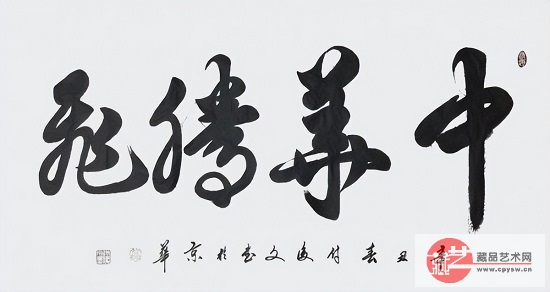 中華騰飛
辛丑春付俊文書於京華
藝 藏品艺术网
www.cpysw.cn